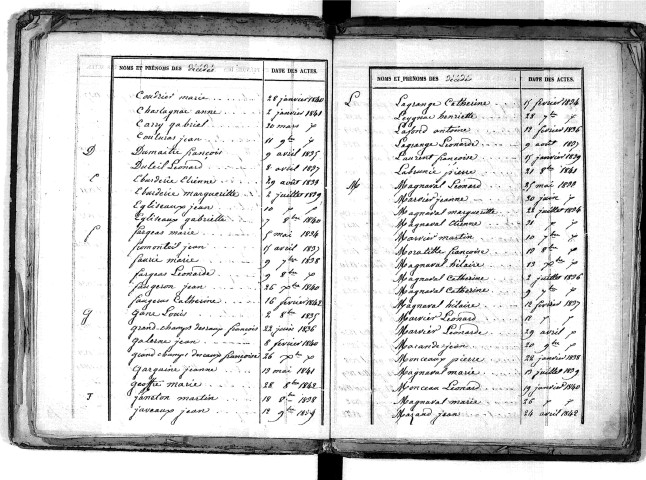 NOMS ET PRÉNOMS DES décédés DATE DES ACTES.
Coudrier marie 28 janvier 1840
Chastagnac anne 2 janvier 1841
Carry gabriel 20 mars
Couturas jean 11 9bre
D Dumaitre françois 9 avril 1835
Duteil Léonard 2 avril 1837
E Ebarderie Etienne 29 août 1833
Ebarderie marguerite 2 juillet 1839
Egliseaux jean 10
Egliseaux gabrielle 7 8bre 1840
f fargeas marie 5 mai 1834
fromonteil jean 15 avril 1837
faurie marie 9 7bre 1838
fargeas Léonarde 9 8bre
faugeron jean 26 Xbre 1840
faugeras Catherine 16 février 1842
g gane Louis 2 8bre 1835
grand champs françois 22 juin 1836
galerne jean 8 février 1840
grand champs françoise 26 Xbre
garguine jeanne 19 mai 1841
geoffre marie 28 8bre 1842
J janeton martin 18 8bre 1838
javeaux jean 12 9bre 1839
NOMS ET PRÉNOMS DES décédés DATE DES ACTES.
L Lagrange Catherine 15 février 1834
Leygnac henriette 28 7bre
Lafond antoine 12 février 1836
Lagrange Léonarde 9 août 1837
Laurent françoise 15 janvier 1839
Labrunie pierre 21 8bre 1841
M Magnaval Léonard 25 mai 1833
Marvier jeanne 20 juin
Magnaval marguerite 22 juillet 1834
Magnaval Etienne 31
Marvier martin 10 7bre
Moratille françoise 10 8bre
Magnaval hilaire 13 Xbre
Magnaval Catherine 2 juillet 1836
Magnaval Catherine 9 7bre
Magnaval hilaire 12 février 1837
Marvier Léonard 17
Marvier Léonarde 29 avril
Macande jean 20 9bre
Monceaux pierre 28 janvier 1838
Magnaval marie 13 juillet 1839
Monceau Léonard 19 janvier 1840
Magnaval marie 26
Mazand jean 24 avril 1842